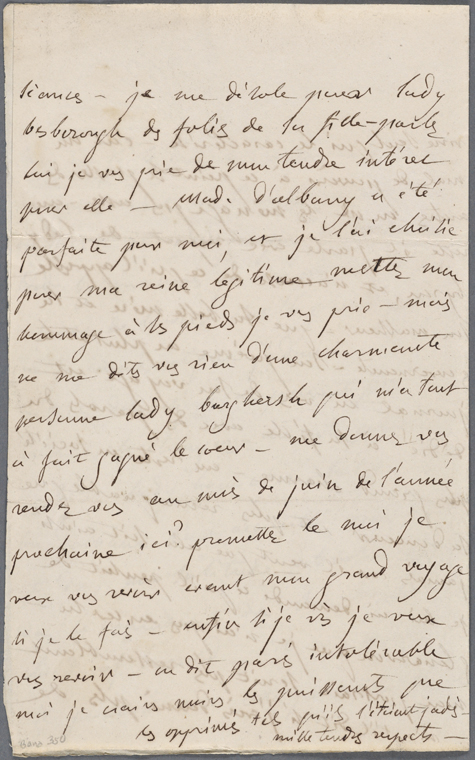 séances – je me désole pour lady
besborough des folies de sa fille – parlez
lui je vous prie de mon tendre intérêt
pour elle – mad. d'albany a été
parfaite pour moi, et je l'ai choisie
pour ma reine légitime mettez mon
hommage à ses pieds je vous prie – mais
ne me dites vous rien d'une charmante
personne lady burghersh qui m'a tout
à fait gagné le coeur – me donnez vous
rendez vous au mois de juin de l'année
prochaine ici? promettez le moi je
veux vous revoir avant mon grand voyage
si je le fais – enfin si je vis je veux
vous revoir – on dit paris intolérable
moi je crains moins les puissants que
les opprimés tels qu'ils l'étaient jadis
mille tendres respects –